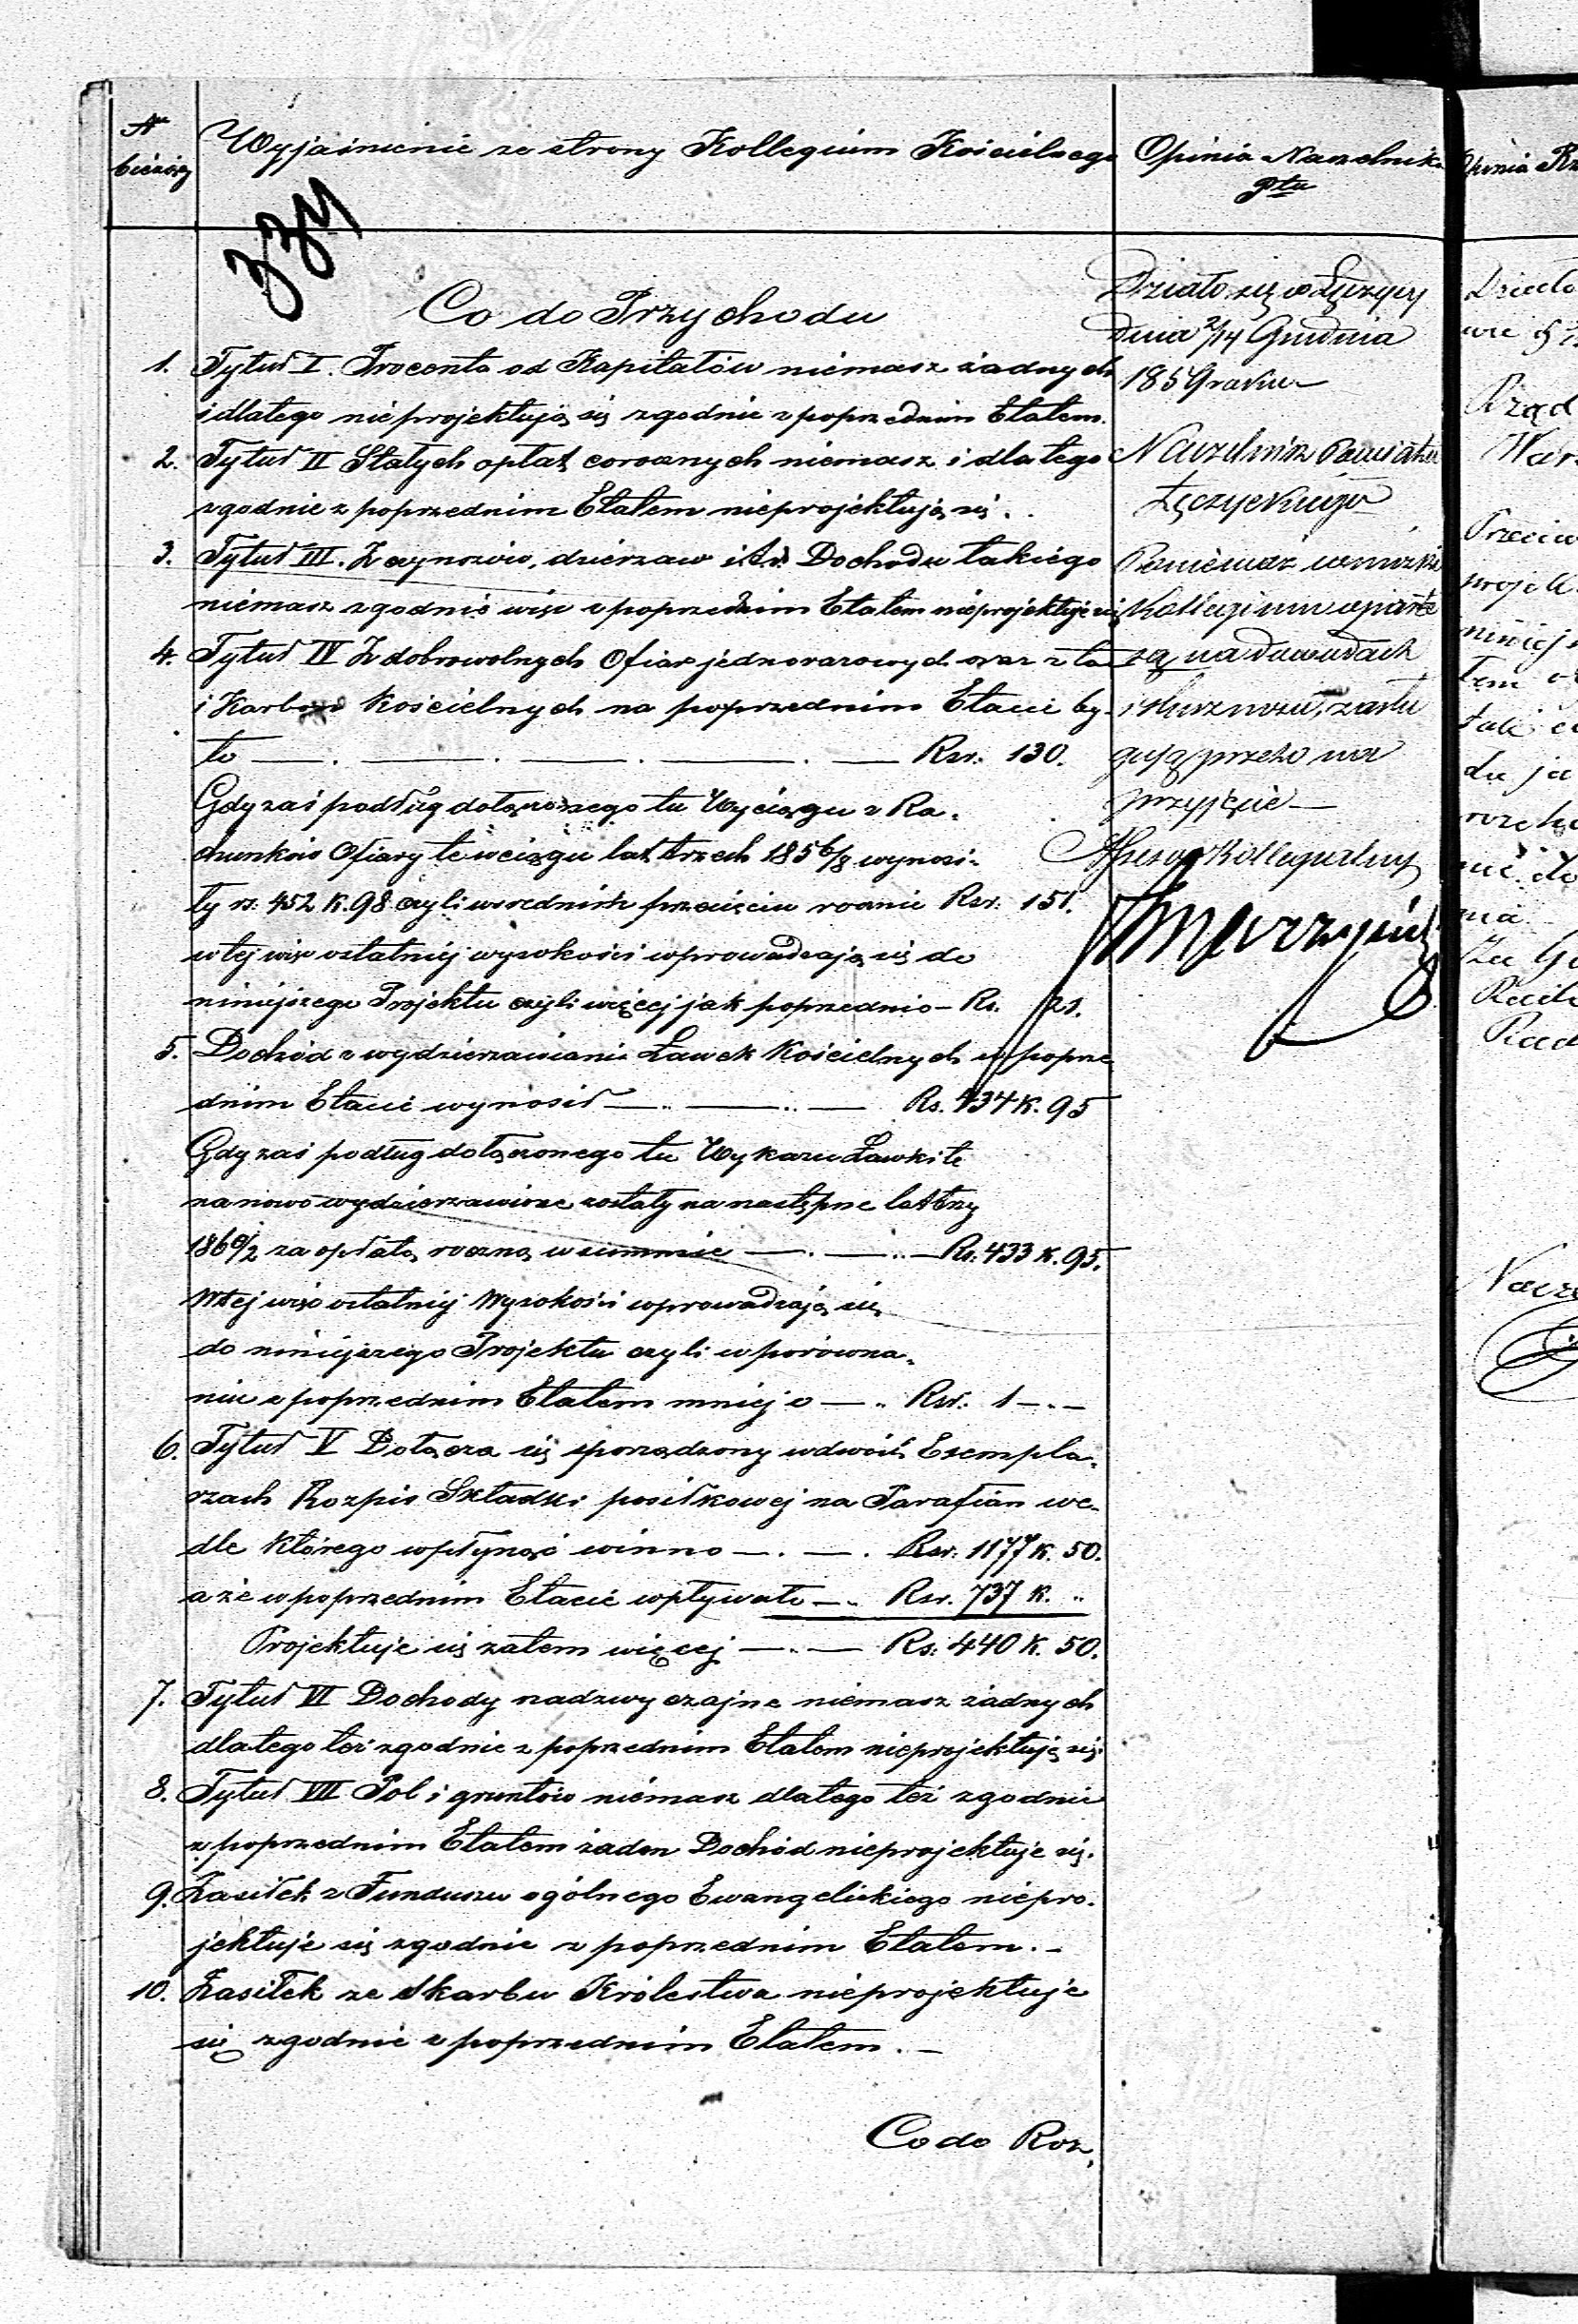 Nr bieżący
Wyjaśnienie ze strony Kollegium Kościelnego
334
Co do Przychodu
1. Tytuł I. Procenta od Kapitałów niemasz żadnych
i dlatego nieprojektują się zgodnie z poprzednim Etatem.
2. Tytuł II Stałych opłat corocznych niemasz i dlatego
zgodnie z poprzednim Etatem nieprojektują się.
3. Tytuł III. Z czynszów, dzierzaw i t.d. Dochodu takiego
niemasz zgodnie więc z poprzednim Etatem nieprojektuje się
4. Tytuł IV Z dobrowolnych Ofiar jednorazowych oraz z tac
i Karbon Kościelnych na poprzednim Etacie by-
ło —. —. —. —. — Rsr. 130.
Gdy zaś podług dołączonego tu Wyciągu z Ra-
chunków Ofiary te wciągu lat trzech 1856/8 wynosi-
ły rs. 452 k. 98 czyli w srednim przecięciu rocznie Rsr. 151.
w tej więc ostatniej wysokości wprowadzają się do
niniejszego Projektu czyli więcej jak poprzednio – Rs. 21.
5. Dochód z wydzierzawiania Ławek Kościelnych w poprze
dnim Etacie wynosił —.. —.. — Rs. 434 k. 95
Gdy zaś podług dołączonego tu Wykazu Ławki te
na nowo wydzierzawione zostały na następne lat trzy
1860/2 za opłatą roczną w summie —. —.. — Rs. 433 k. 95.
W tej więc ostatniej Wysokości wprowadzają się
do niniejszego Projektu czyli w porówna-
niu z poprzednim Etatem mniej o —.. Rsr. 1 —.—
6. Tytuł V Dołącza się sporządzony w dwóch Exempla-
rzach Rozpis Składki posiłkowej na Parafian we-
dle którego wpłynąć winno —. —. Rsr. 1177 k. 50.
a że w poprzednim Etacie wpływało —.. Rsr. 737 k. "
Projektuje się zatem więcej —..— Rs. 440 k. 50.
7. Tytuł VI Dochody nadzwyczajne niemasz żadnych
dlatego też zgodnie z poprzednim Etatem nieprojektują się.
8. Tytuł VII Pol i gruntów niemasz dlatego też zgodnie
z poprzednim Etatem żaden Dochód nieprojektuje się.
9. Zasiłek z Funduszu ogólnego Ewangelickiego niepro-
jektuje się zgodnie z poprzednim Etatem. –
10. Zasiłek ze Skarbu Królestwa nieprojektuje
się zgodnie z poprzednim Etatem. –
Co do Roz.
Opinia Naczelnika
Ptu
Działo się w Łęczycy
Dnia 2/14 Grudnia
1859 roku –
Naczelnik Powiatu
Łęczyckiego
Ponieważ wnioski
Kollegium oparte
są na dowodach
i słuszności, zasłu
gują przeto na
przyjęcie –
Assesor Kollegialny
Opinia Rz
Działo
Rząd
War
Przeciw
niniej
tem
du ja
Za
Rad
Nacz